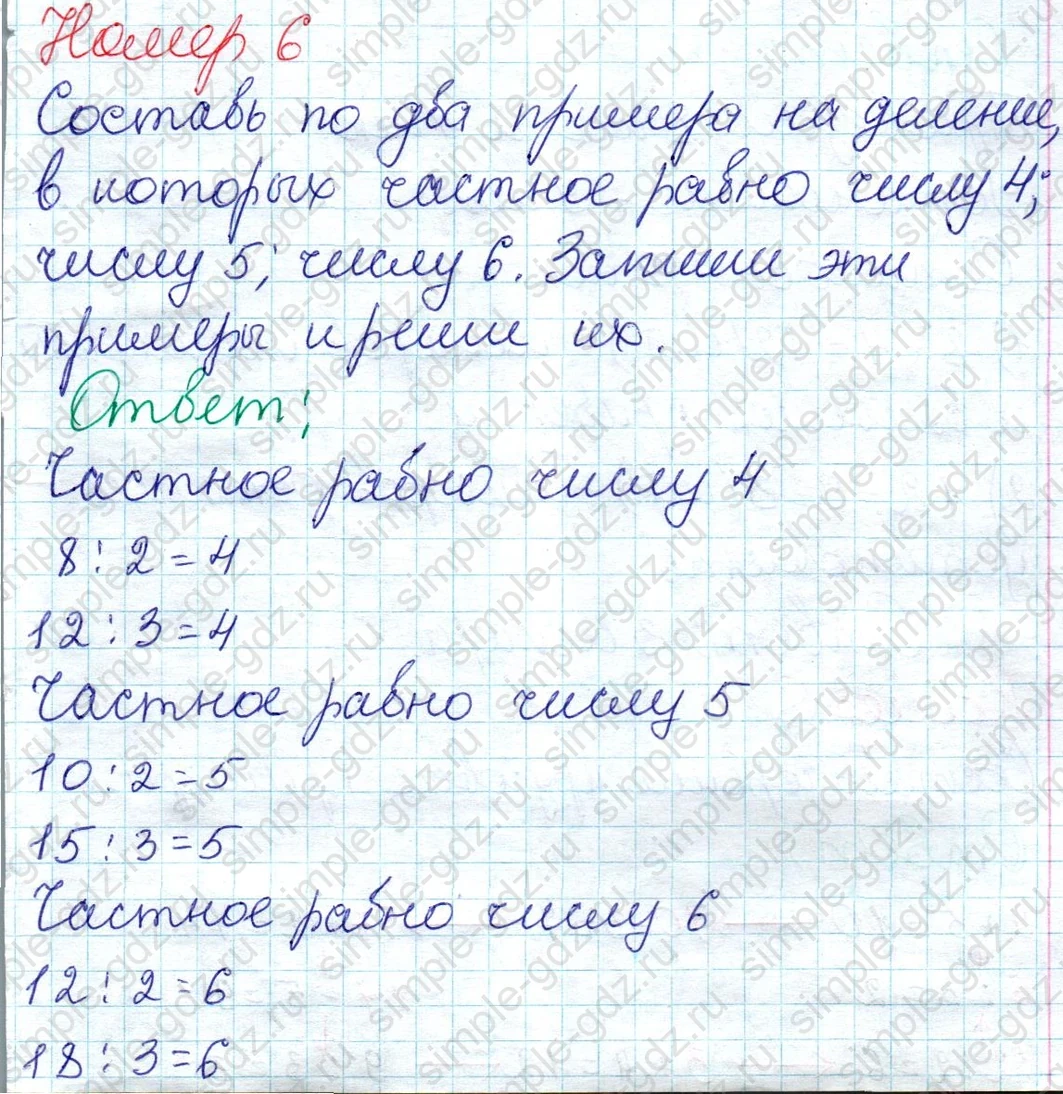 Номер 6
Составь по два примера на деление,
в которых частное равно числу 4;
числу 5; числу 6. Запиши эти
примеры и реши их.
Ответ:
Частное равно числу 4
8 : 2 = 4
12 : 3 = 4
Частное равно числу 5
10 : 2 = 5
15 : 3 = 5
Частное равно числу 6
12 : 2 = 6
18 : 3 = 6
simple-gdz.ru